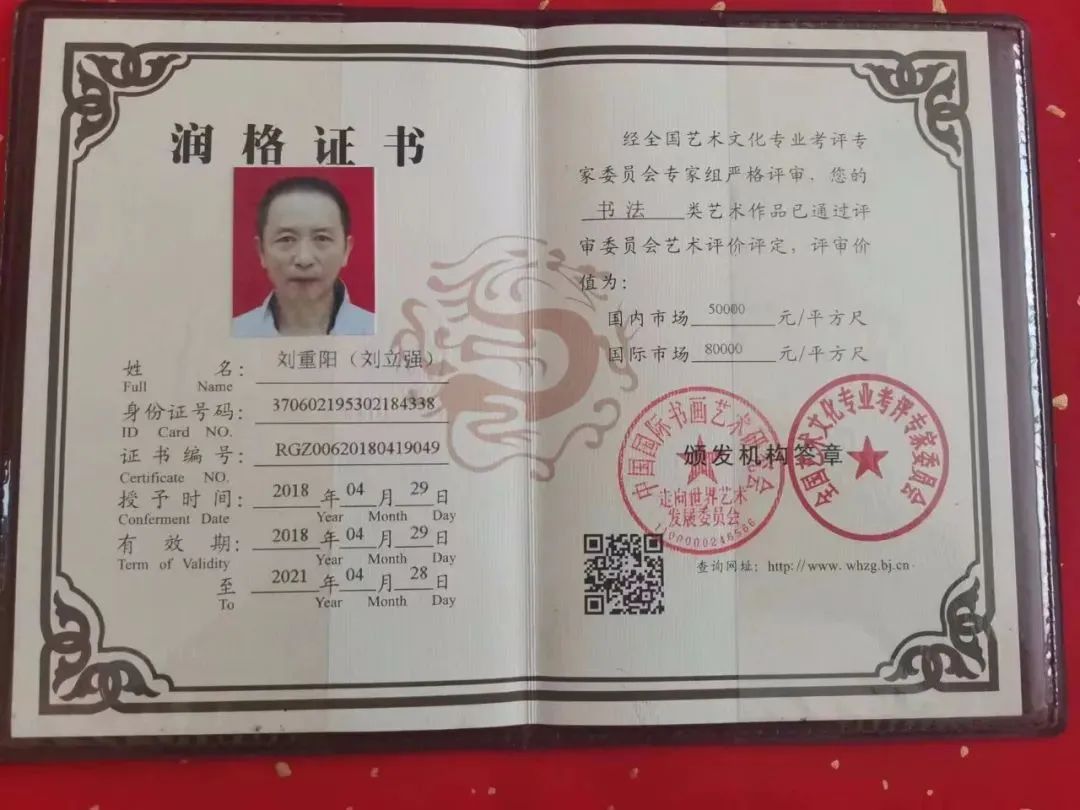 润格证书
姓 名： 刘重阳（刘立强）
Full Name
身份证号码： 370602195302184338
ID Card NO.
证书编号： RGZ00620180419049
Certificate NO.
授予时间： 2018 年 04 月 29 日
Conferment Date Year Month Day
有效期： 2018 年 04 月 29 日
Term of Validity Year Month Day
至 2021 年 04 月 28 日
To Year Month Day
经全国艺术文化专业考评专
家委员会专家组严格评审，您的
书法 类艺术作品已通过评
审委员会艺术评价评定，评审价
值为：
国内市场 50000 元/平方尺
国际市场 80000 元/平方尺
颁发机构签章
中国国际书画艺术研究会
走向世界艺术
发展委员会
全国艺术文化专业考评专家委员会
查询网址：http://www.whzg.bj.cn